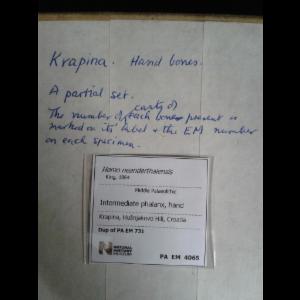 Krapina. Hand bones.
A partial set.
casts of
The number of each bone present is
marked on its label & the EM number
on each specimen.
Homo neanderthalensis
King, 1864
Middle Palaeolithic
Intermediate phalanx, hand
Krapina, Hušnjakovo Hill, Croatia
Dup of PA EM 731
NATURAL
HISTORY
MUSEUM
PA EM 4065